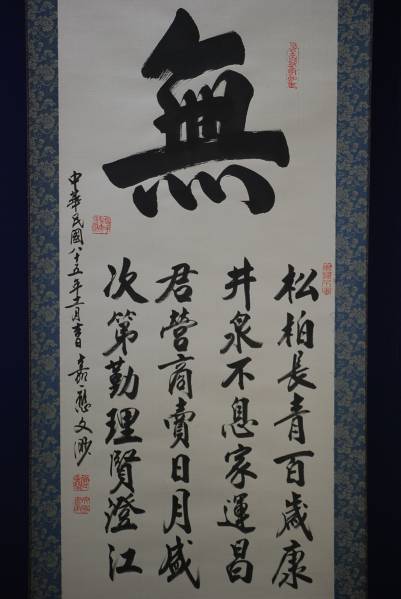 無
松柏長青百歲康
井泉不息家運昌
君營商賣日月盛
次第勤理賢澄江
中華民國八十五年十二月書嘉應文